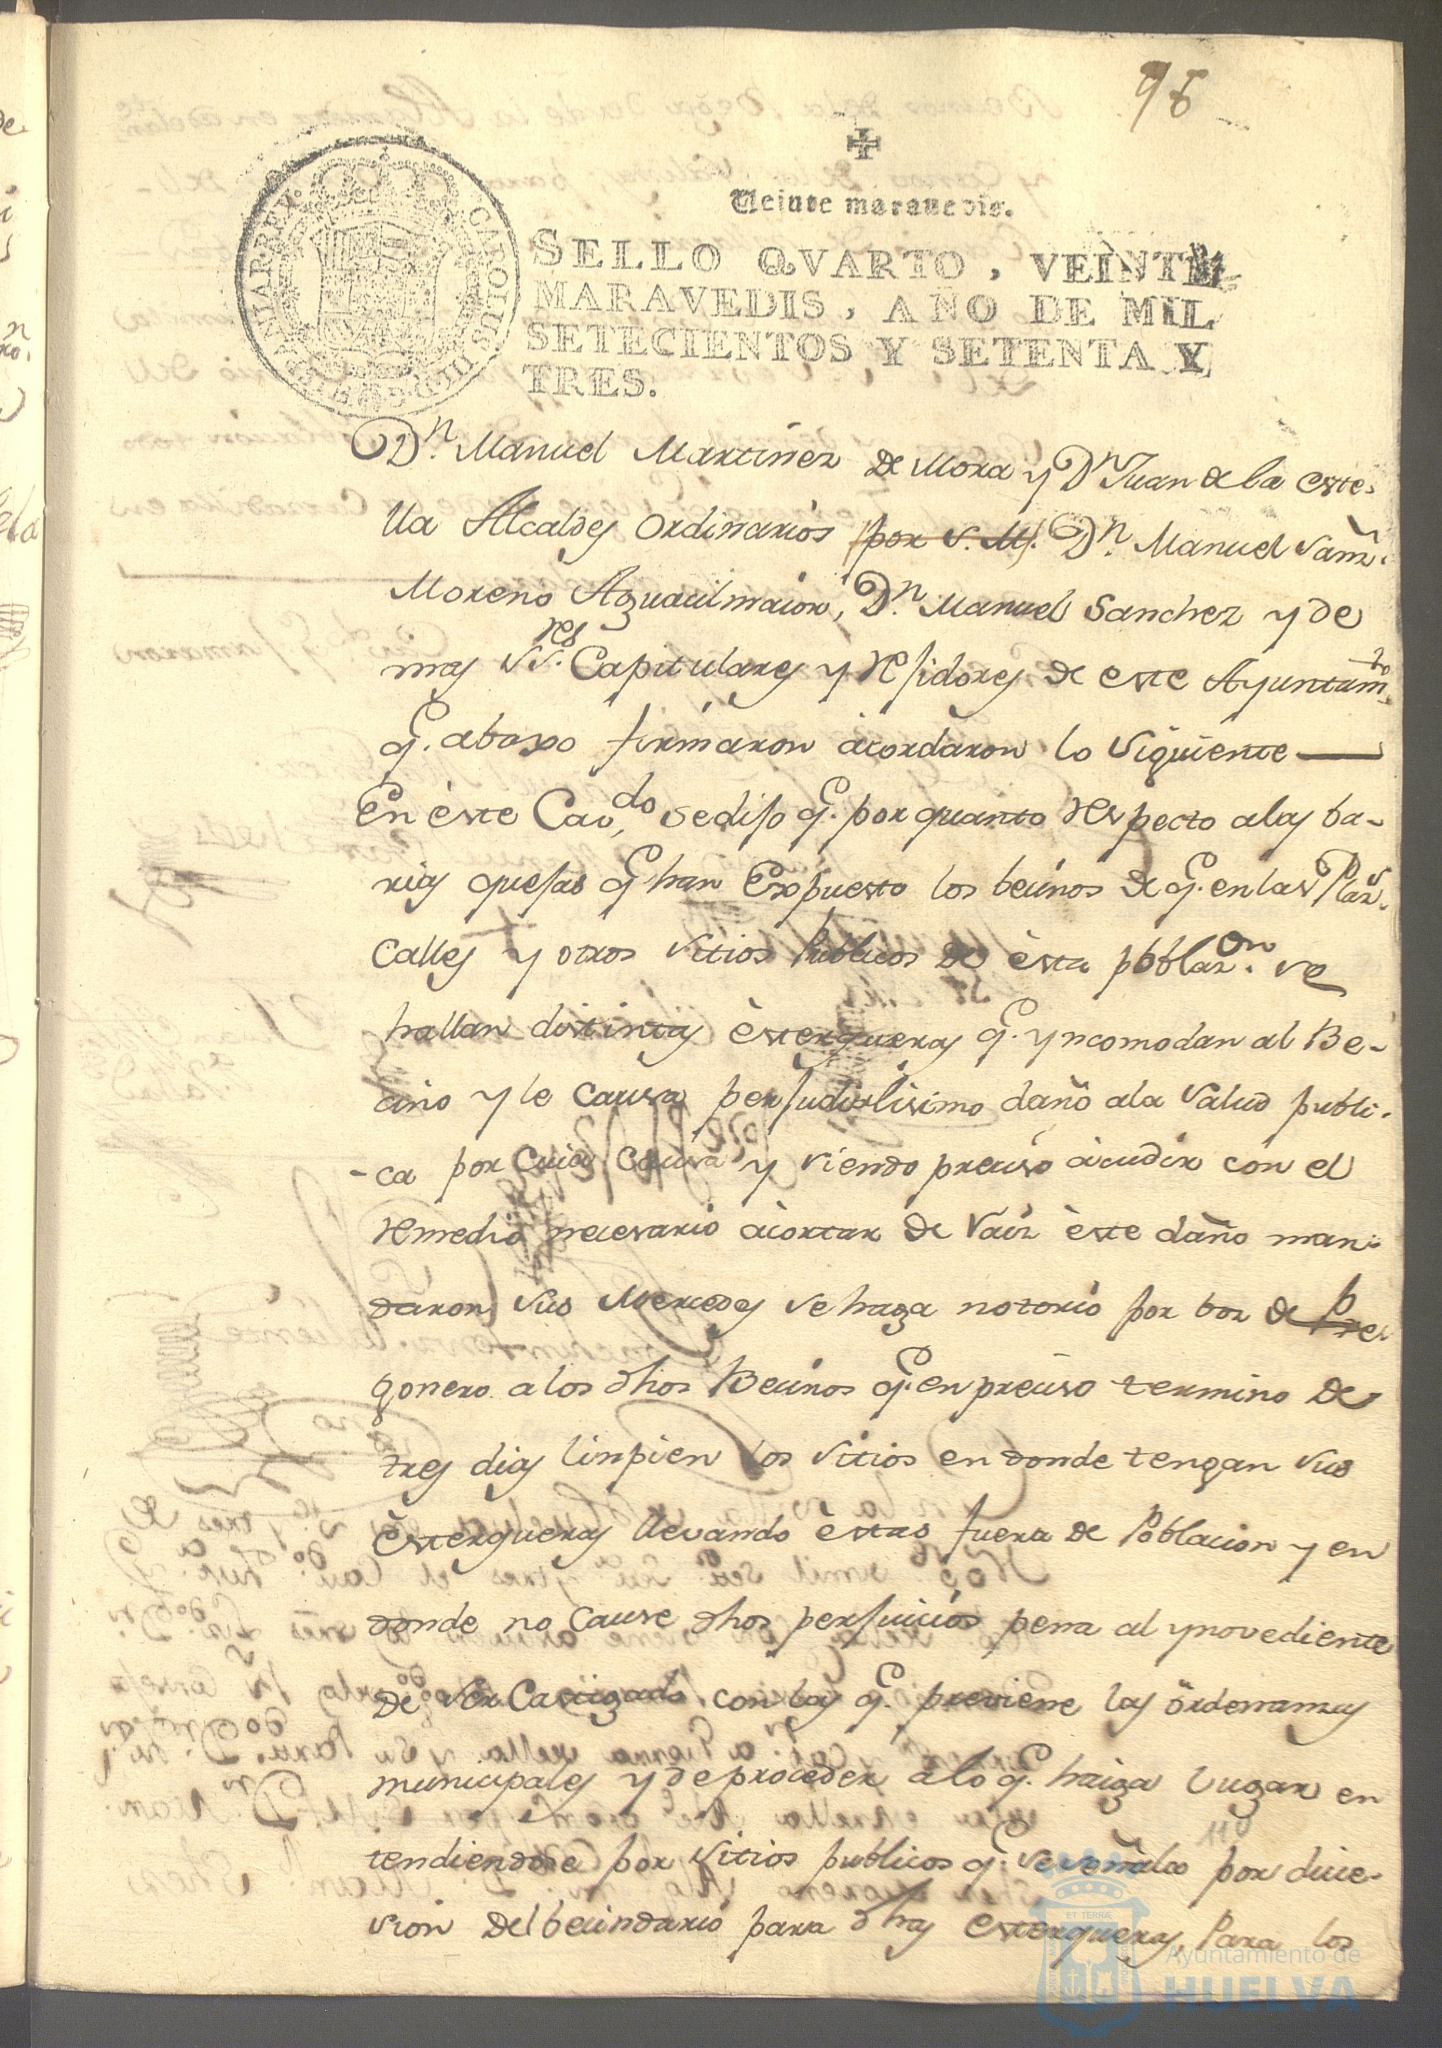 98
Veinte maravedis.
SELLO QVARTO, VEINTE
MARAVEDIS, AÑO DE MIL
SETECIENTOS Y SETENTA Y
TRES.
CAROLUS III D G HISPANIAR REX
Dn. Manuel Martinez de Mora y Dn Juan de la este-
lla Alcaldes Ordinarios por S. M. Dn. Manuel
Moreno Aguacil maior, Dn. Manuel Sanchez y de
mas SSres. Capitulares y Rexidores de este Ayuntamto.
q. abaxo firmaron acordaron lo siguiente
En este Cavdo, se dijo q. por quanto respecto a las ba-
rias quejas q. han Expuesto los becinos de q. en las Plazs.
calles y otros sitios Publicos de èsta poblazon. se
hallan distintas èsterqueras q. yncomodan al Be-
cino y le causa perjudicilisimo daño a la salud publi-
-ca por cuia causa y siendo preciso acudir con el
remedio necesario àcortar de raiz èste daño man-
daron sus Mercedes se haga notorio por boz de Pre
gonero a los dhos Becinos q. en preciso termino de
tres dias linpien los sitios en donde tengan sus
èsterqueras llevando èstas fuera de Poblacion y en
donde no cause dhos perjuicios pena al ynovediente
de ser Castigado con las q. previene las ordenanzas
municipales y de proceder a lo q. haiga lugar en
tendiendose por sitios publicos q. se señala por dice-
sion del becindario para dhas esterqueras, Para los
110
ET TERRÆ
Ayuntamiento de
HUELVA